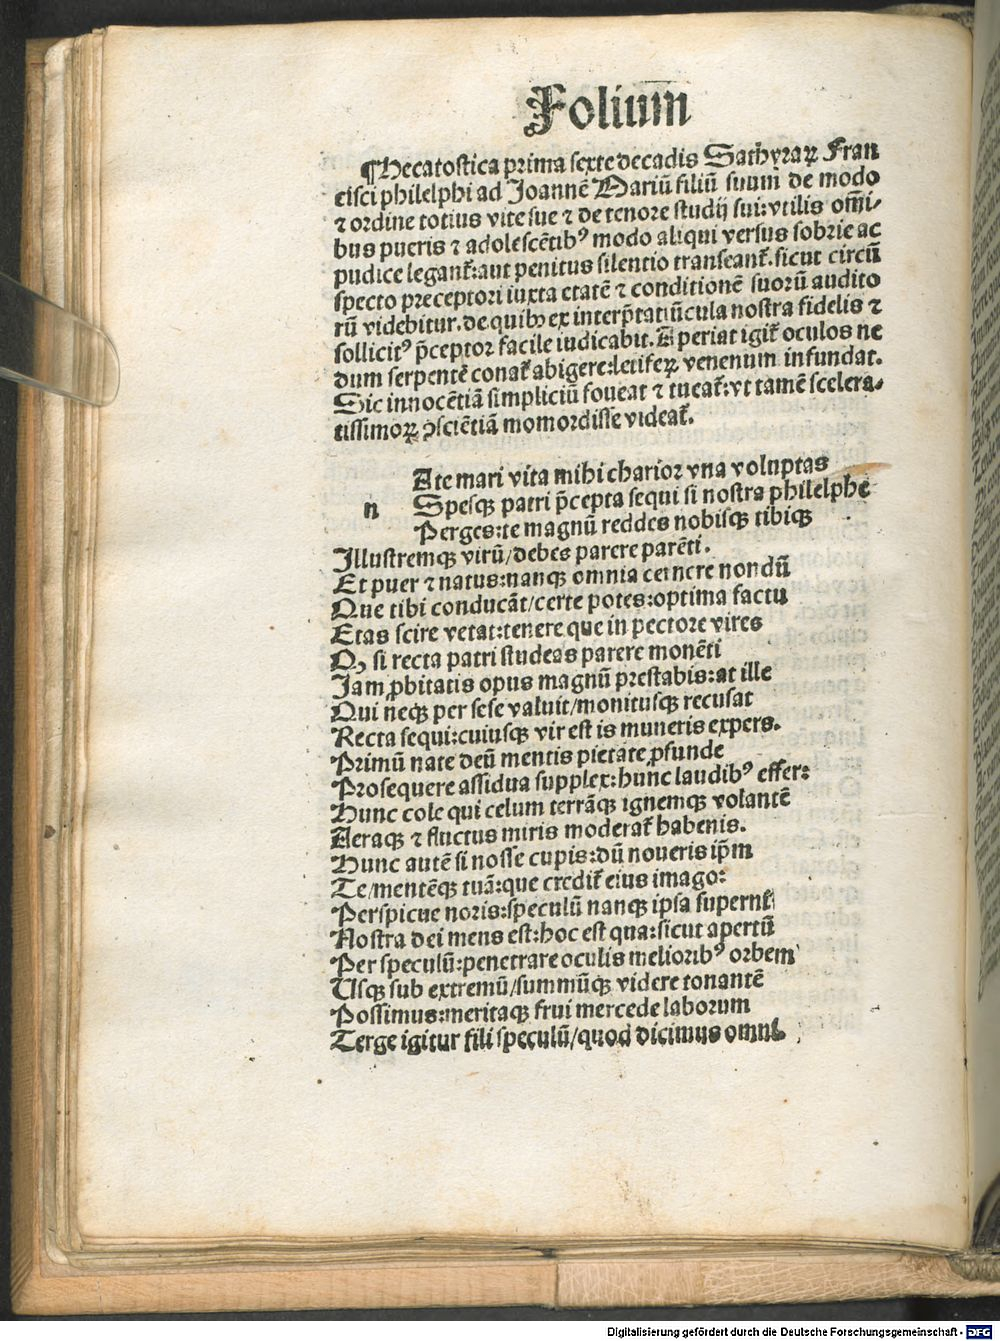 Folium̄
¶Hecatostica prima sexte decadis Sathyraꝝ Fran
cisci philelphi ad Joannē Mariū filiū suum de modo
⁊ ordine totius vite sue ⁊ de tenore studij sui:vtilis om̄i-
bus pueris ⁊ adolescētibꝰ modo aliqui versus sobrie ac
pudice legant̄:aut penitus silentio transeant̄.sicut circū
specto preceptori iuxta etatē ⁊ conditionē suorū audito
rū videbitur.de quibꝫ ex interp̄tatiūcula nostra fidelis ⁊
sollicitꝰ p̄ceptor facile iudicabit.Aperiat igit̄ oculos ne
dum serpentē conat̄ abigere:letiferꝝ venenum infundat.
Sic innocētiā simpliciū foueat ⁊ tueat̄:vt tamē scelera-
tissimoꝝ ꝯsciētiā momordisse videat̄.
Ate mari vita mihi charior vna voluptas
n Spesqꝫ patri p̄cepta sequi si nostra philelphe
Perges:te magnū reddes nobisqꝫ tibiqꝫ
Illustremqꝫ virū/debes parere parēti.
Et puer ⁊ natus:nanqꝫ omnia cernere nondū
Que tibi conducāt/certe potes:optima factu
Etas scire vetat:tenere que in pectore vires
Qꝫ si recta patri studeas parere monēti
Jam ꝓbitatis opus magnū prestabis:at ille
Qui neqꝫ per sese valuit/monitusqꝫ recusat
Recta sequi:cuiusqꝫ vir est is muneris expers.
Primū nate deū mentis pietate ꝓfunde
Prosequere assidua supplex:hunc laudibꝰ effer:
Hunc cole qui celum terrāqꝫ ignemqꝫ volantē
Aeraqꝫ ⁊ fluctus miris moderat̄ habenis.
Hunc autē si nosse cupis:dū noueris ip̄m
Te/mentēqꝫ tuā:que credit̄ eius imago:
Perspicue noris:speculū nanqꝫ ipsa superni
Nostra dei mens est:hoc est qua:sicut apertū
Per speculū:penetrare oculis melioribꝰ orbem
Usqꝫ sub extremū/summūqꝫ videre tonantē
Possimus:meritaqꝫ frui mercede laborum
Terge igitur fili speculū/quod dicimus omni.
Digitalisierung gefördert durch die Deutsche Forschungsgemeinschaft - DFG